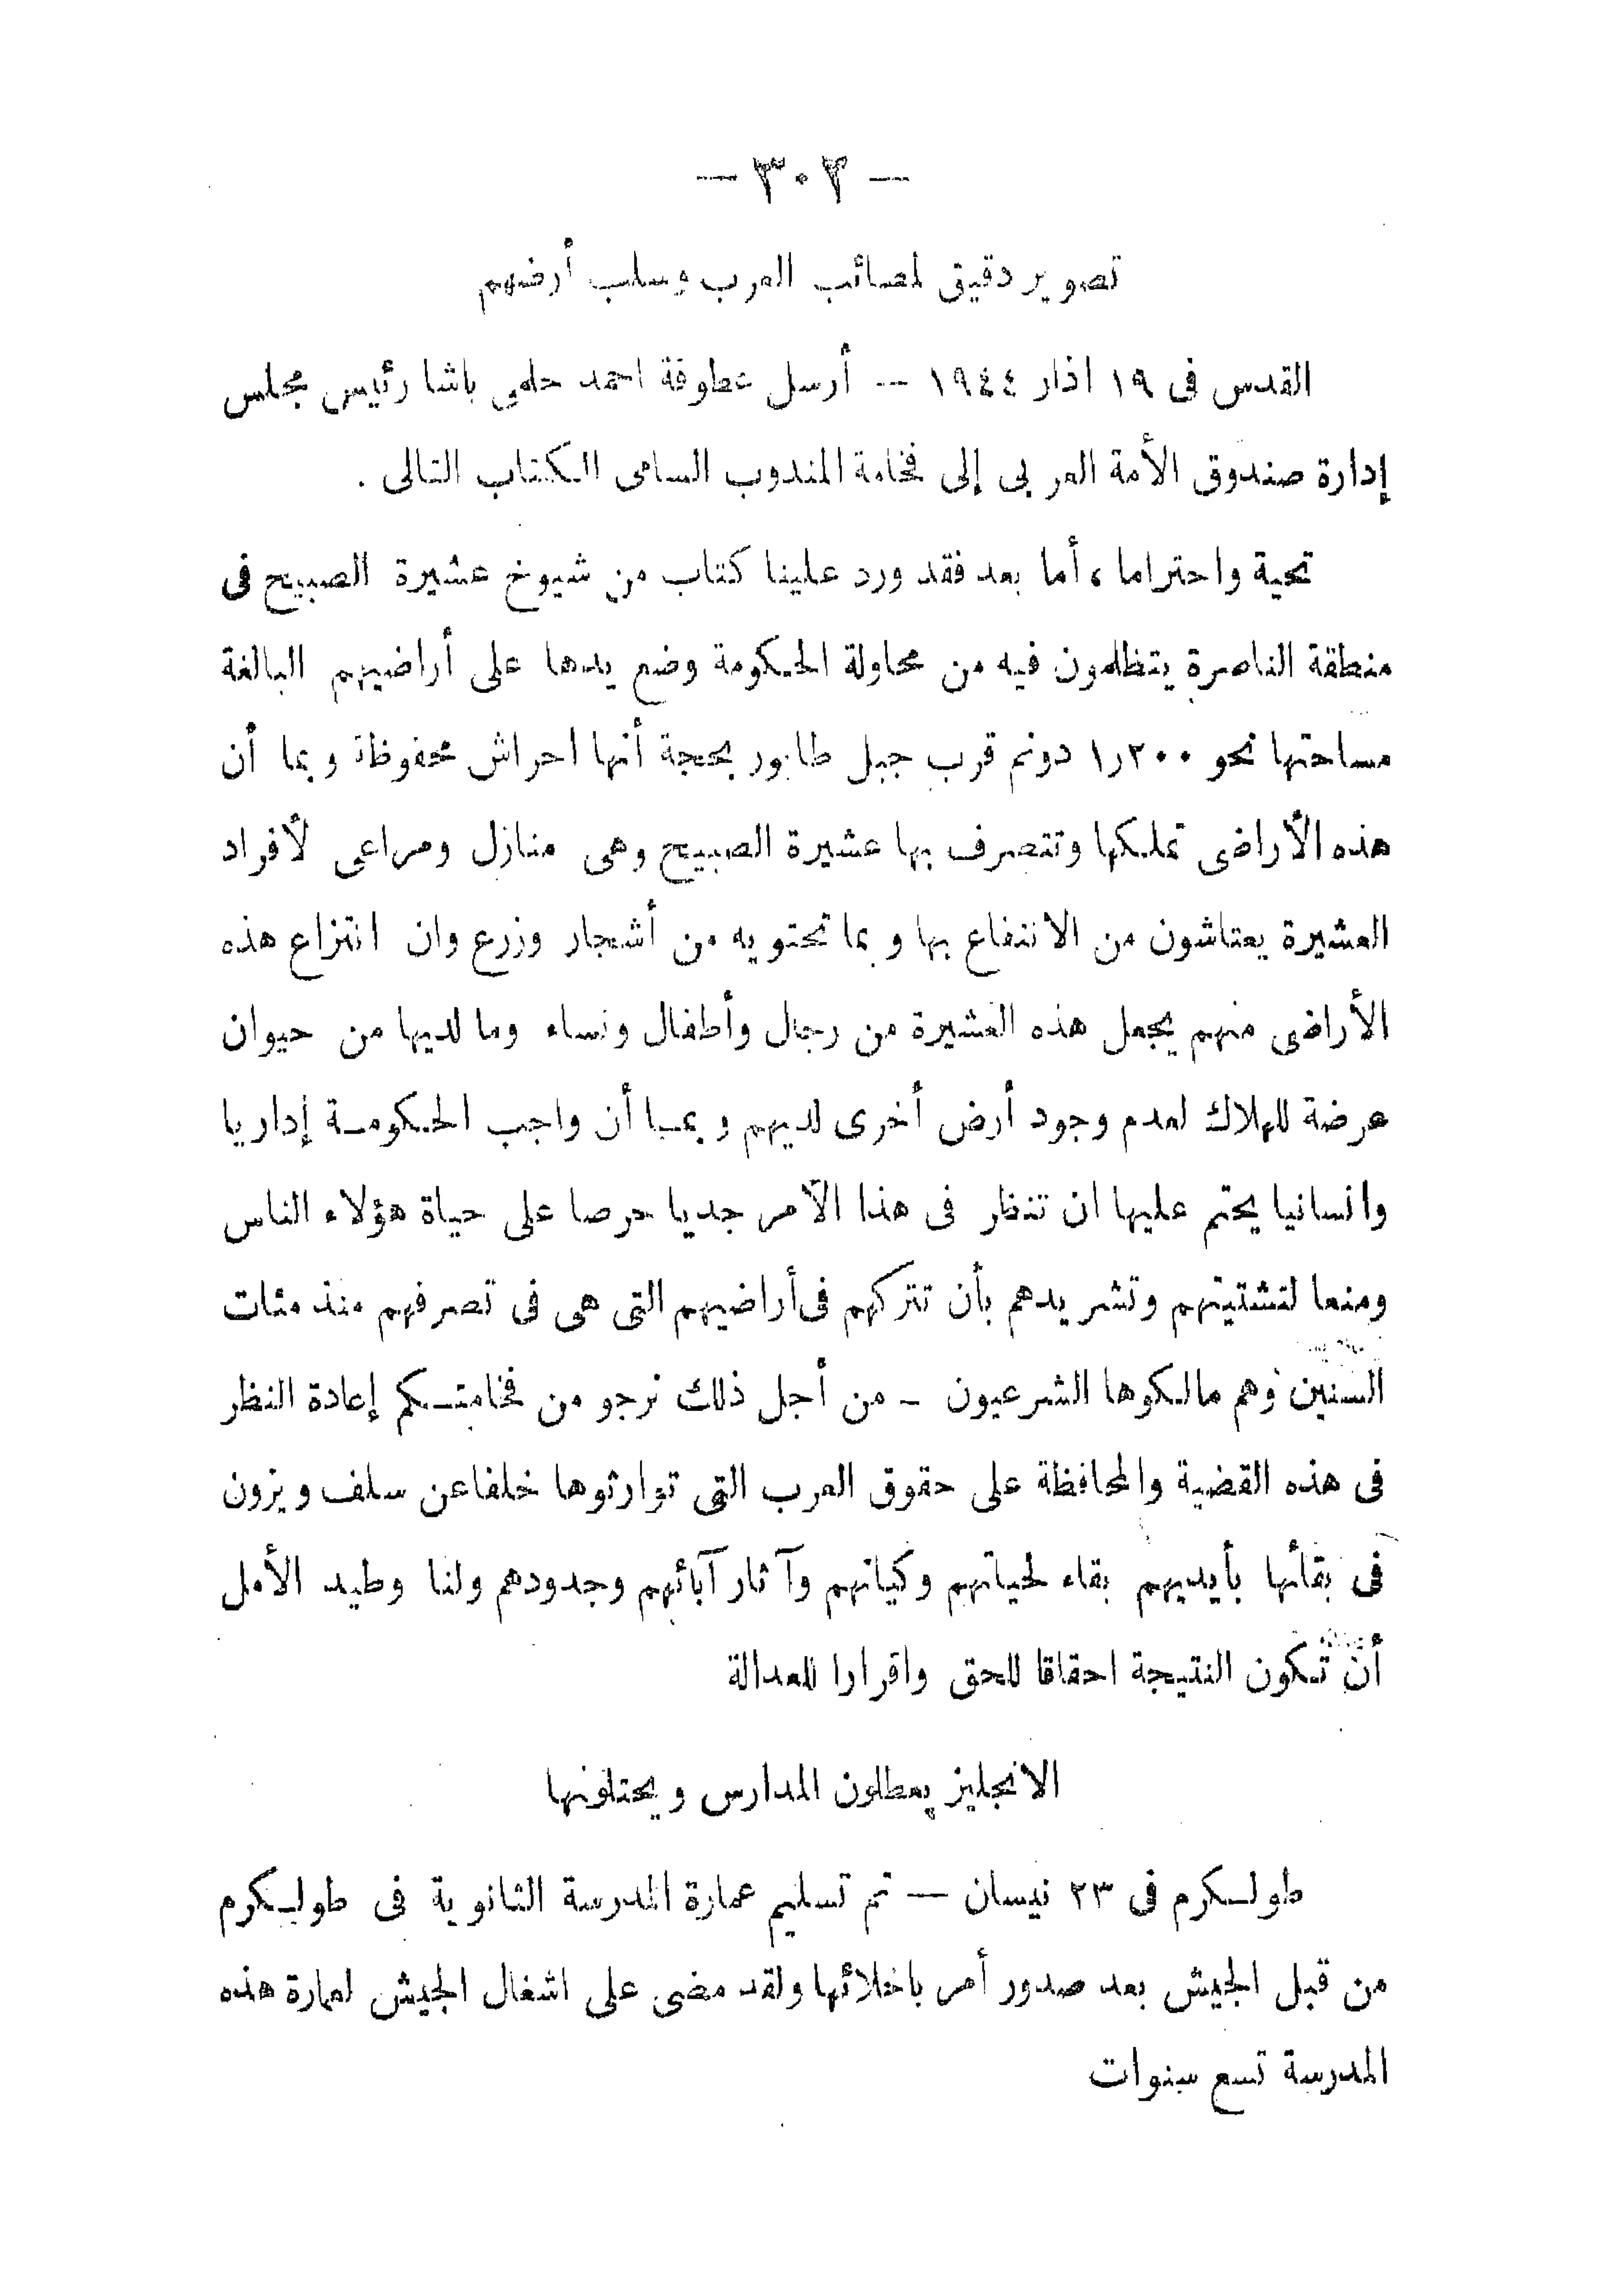 — ٣٠٣ —
تصوير دقيق لمصائب العرب وسلب أرضهم
القدس فى ١٩ اذار ١٩٤٤ — أرسل عطوفة احمد حلمى باشا رئيس مجلس
إدارة صندوق الأمة العربى إلى فخامة المندوب السامى الكتاب التالى .
تحية واحتراما ، أما بعد فقد ورد علينا كتاب من شيوخ عشيرة الصبيح فى
منطقة الناصرة يتظلمون فيه من محاولة الحكومة وضع يدها على أراضيهم البالغة
مساحتها نحو ١٫٢٠٠ دونم قرب جبل طابور بحجة أنها احراش محفوظة وبما أن
هذه الأراضى تملكها وتتصرف بها عشيرة الصبيح وهى منازل ومراعى لأفراد
العشيرة يعتاشون من الانتفاع بها وبما تحتويه من أشجار وزرع وان انتزاع هذه
الأراضى منهم يجعل هذه العشيرة من رجال وأطفال ونساء وما لديها من حيوان
عرضة للهلاك لعدم وجود أرض أخرى لديهم وبما أن واجب الحكومة إداريا
وانسانيا يحتم عليها ان تنظر فى هذا الأمر جديا حرصا على حياة هؤلاء الناس
ومنعا لتشتيتهم وتشريدهم بأن تتركهم فى أراضيهم التى هى فى تصرفهم منذ مئات
السنين وهم مالكوها الشرعيون - من أجل ذلك نرجو من فخامتكم إعادة النظر
فى هذه القضية والمحافظة على حقوق العرب التى توارثوها خلفا عن سلف ويرون
فى بقائها بأيديهم بقاء لحياتهم وكيانهم وآثار آبائهم وجدودهم ولنا وطيد الأمل
أن تكون النتيجة احقاقا للحق واقرارا للعدالة
الانجليز يعطلون المدارس ويحتلونها
طولكرم فى ٢٣ نيسان — تم تسليم عمارة المدرسة الثانوية فى طولكرم
من قبل الجيش بعد صدور أمر باخلائها ولقد مضى على اشغال الجيش لعمارة هذه
المدرسة تسع سنوات